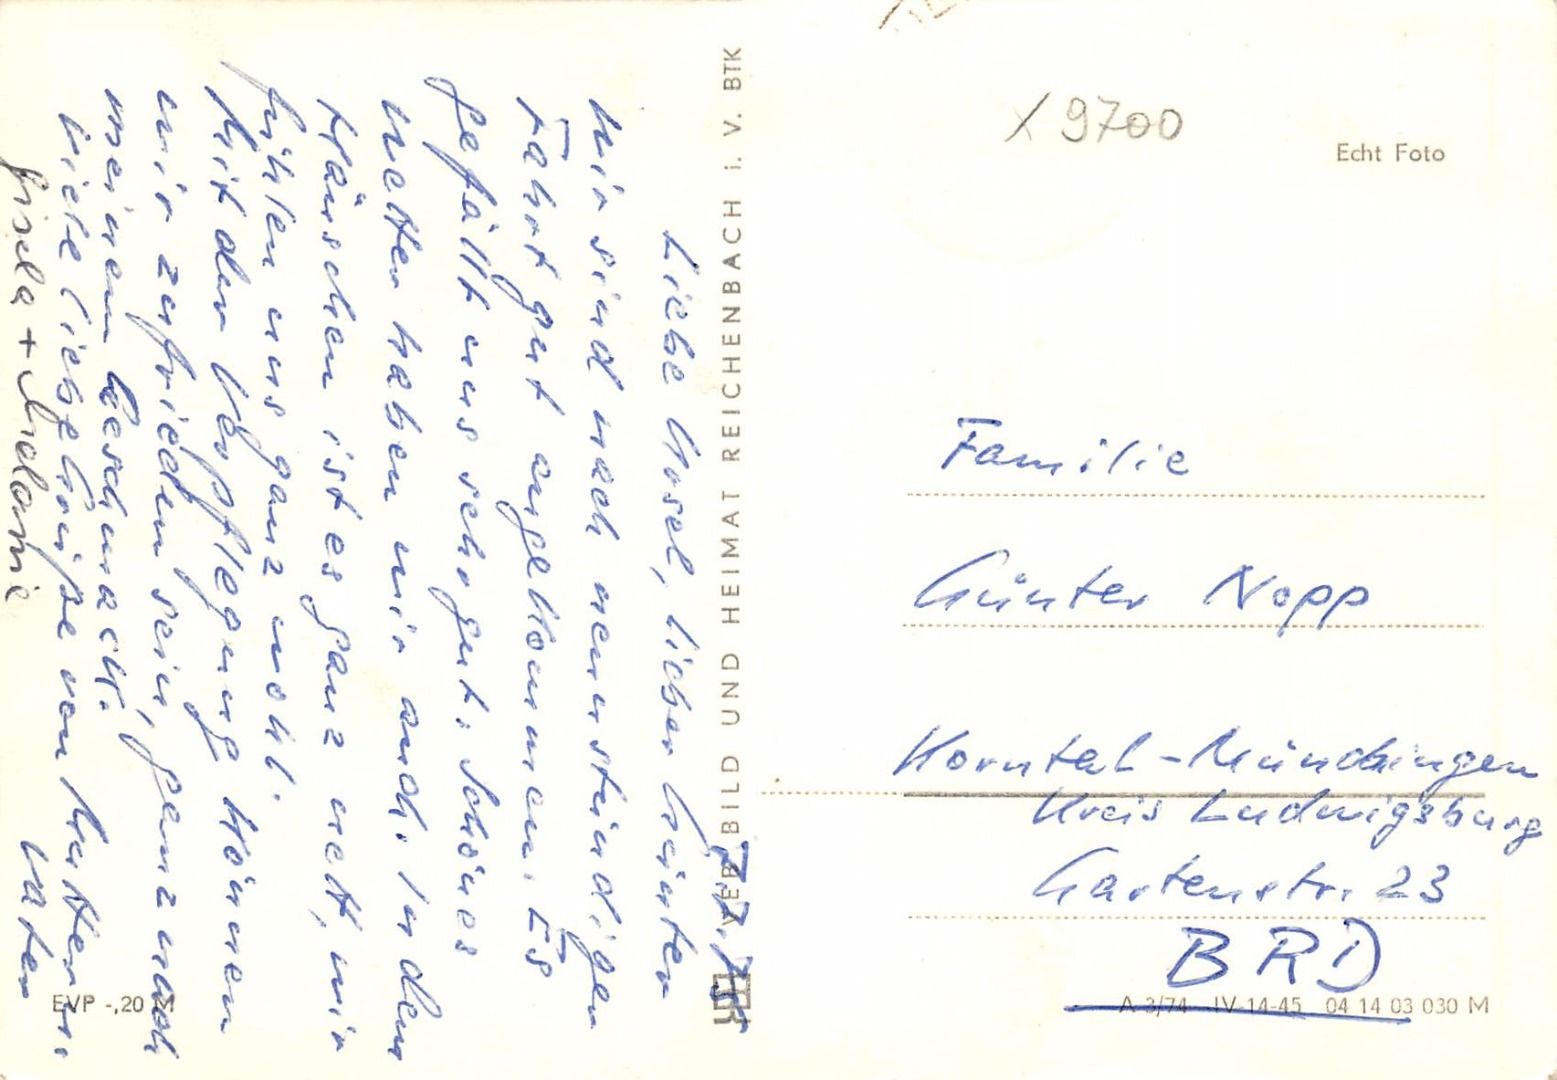 7.7.75
Liebe Ursel, lieber Günter
Wir sind nach neunstündigen
Fahrt gut angekommen. Es
gefällt uns sehr gut. Schönes
Wetter haben wir auch. In dem
Häuschen ist es ganz nett, wir
fühlen uns ganz wohl.
Mit der Verpflegung können
wir zufrieden sein, ganz nach
meinem Geschmack.
Viele liebe Grüße von Mutter u.
Vater
Gisela + Melanie
VEB BILD UND HEIMAT REICHENBACH i. V. BTK
EVP -,20 M
X 9700
Echt Foto
Familie
Günter Nopp
Korntal-Münchingen
Kreis Ludwigsburg
Gartenstr. 23
BRD
A 3/74 IV-14-45 04 14 03 030 M